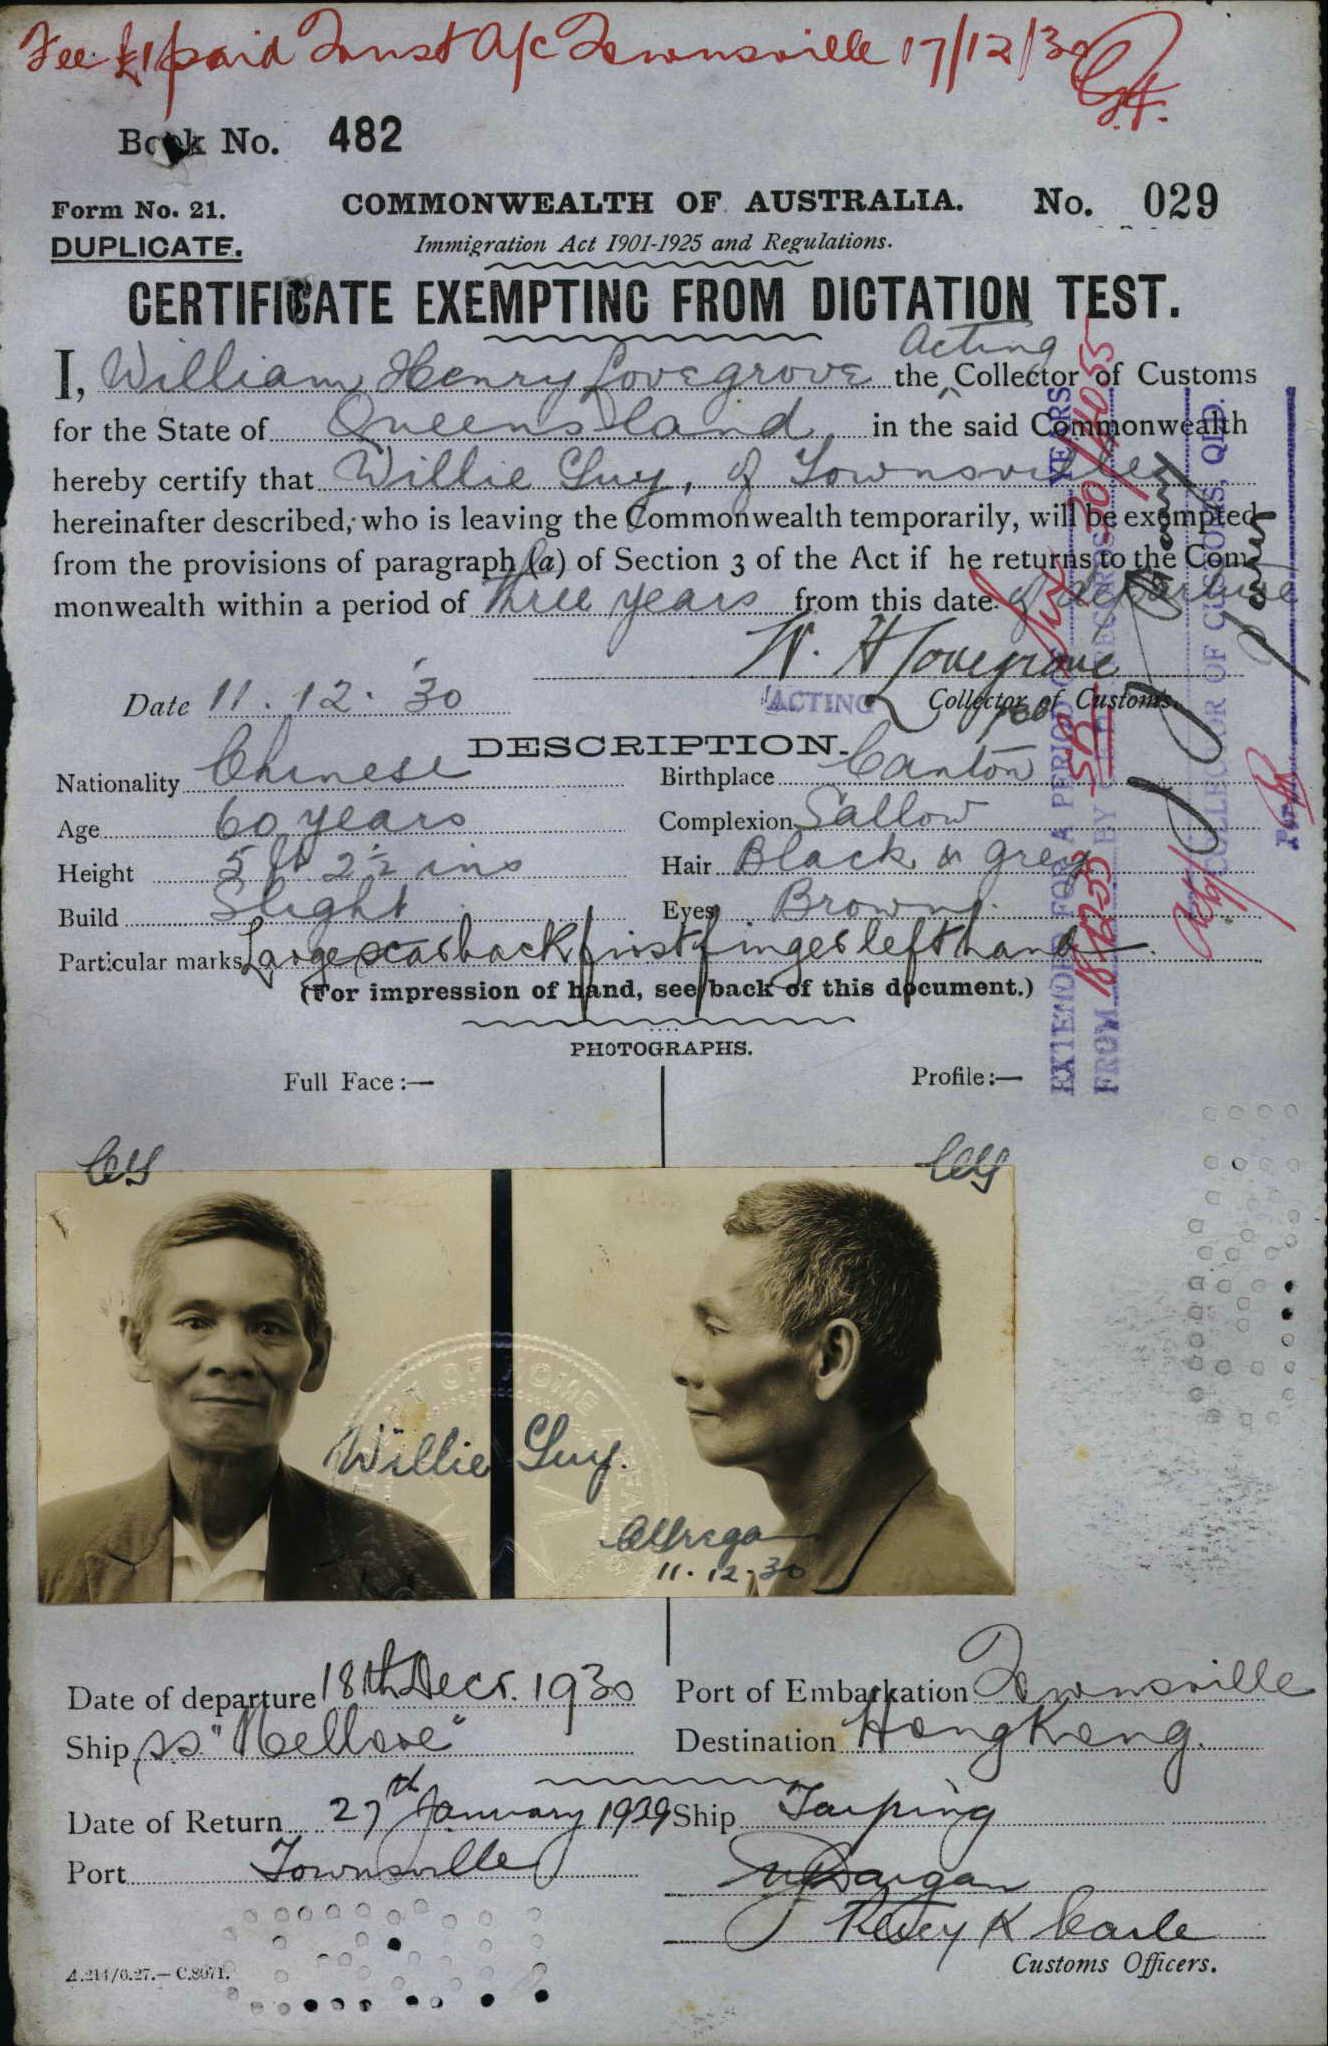 Fee £1/ paid Trust A/c Townsville 17/12/30
Book No. 482
Form No. 21. COMMONWEALTH OF AUSTRALIA. No. 029
DUPLICATE. Immigration Act 1901-1925 and Regulations.
CERTIFICATE EXEMPTING FROM DICTATION TEST.
Acting
I, William Henry Lovegrove the Collector of Customs
for the State of Queensland in the said Commonwealth
hereby certify that Willie Guy, of Townsville
hereinafter described, who is leaving the Commonwealth temporarily, will be exempted
from the provisions of paragraph (a) of Section 3 of the Act if he returns to the Com-
monwealth within a period of three years from this date of departure
W. H Lovegrove
Date 11. 12. '30 ACTING Collector of Customs.
DESCRIPTION.
Nationality Chinese Birthplace Canton
Age 60 years Complexion Sallow
Height 5 ft 2½ ins Hair Black & grey
Build Slight Eyes Brown
Particular marks Large scar back first finger left hand.
(For impression of hand, see back of this document.)
PHOTOGRAPHS.
Full Face:— Profile:—
Willie Guy.
11.12.30
Date of departure 18th Decr. 1930 Port of Embarkation Townsville
Ship ss "Nellore" Destination Hong Kong.
Date of Return 27th January 1939 Ship Taiping
Port Townsville
Customs Officers.
A.214/6.27.—C.8071.
EXTENDED FOR A PERIOD OF YEARS
FROM 18/12/33 BY
COLLECTOR OF CUSTOMS, QLD.